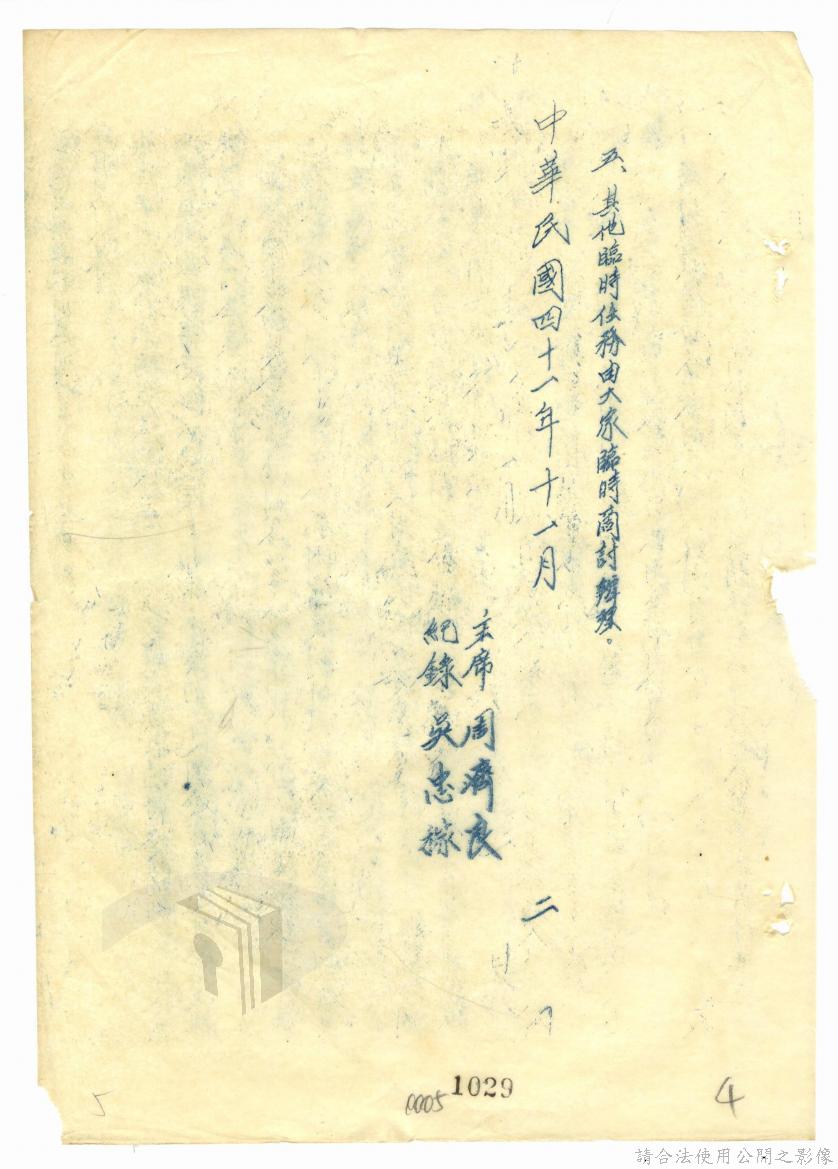 五、其他臨時任務由大家臨時商討辦理。
中華民國四十一年十一月 二
主席 周濟良
紀錄 吳忠
5
0005
1029
4
請合法使用公開之影像